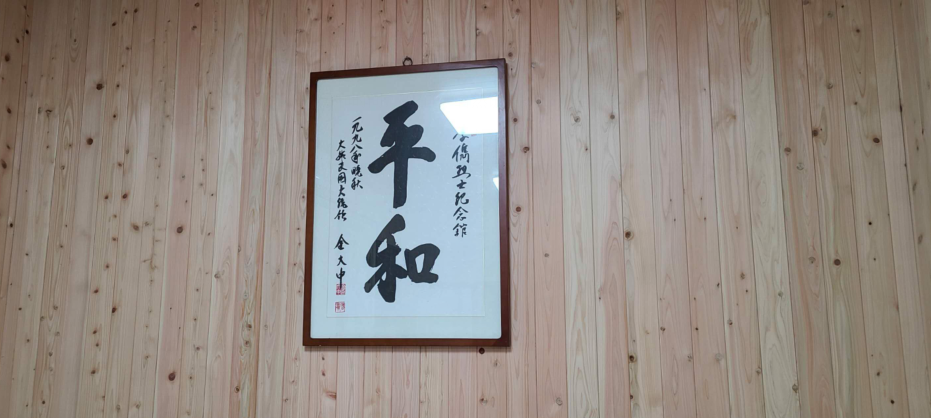 李儁烈士紀念館
平和
一九九八年晚秋
大韓民國大統領 金大中